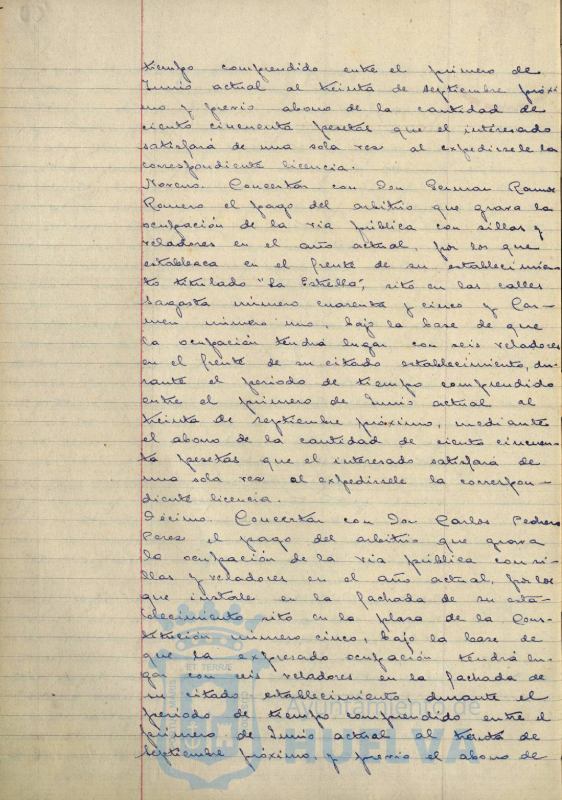 tiempo comprendido entre el primero de
Junio actual al treinta de septiembre próxi
mo y previo abono de la cantidad de
ciento cincuenta pesetas que el interesado
satisfará de una sola vez al expedirsele la
correspondiente licencia.
Noveno. Concertar con Don German Ramos
Romero el pago del arbitrio que grava la
ocupación de la via pública con sillas y
veladores en el año actual, por los que
establezca en el frente de su establecimien
to titulado "La Estrella", sito en las calles
Sagasta número cuarenta y cinco y Car-
men número uno, bajo la base de que
la ocupación tendrá lugar con seis veladores
en el frente de su citado establecimiento, du-
rante el periodo de tiempo comprendido
entre el primero de Junio actual al
treinta de septiembre próximo, mediante
el abono de la cantidad de ciento cincuen
ta pesetas que el interesado satisfará de
una sola vez al expedirsele la correspon-
diente licencia.
Décimo. Concertar con Don Carlos Pedrero
Perez el pago del arbitrio que grava
la ocupación de la via pública con si-
llas y veladores en el año actual, por los
que instale en la fachada de su esta-
blecimiento sito en la plaza de la Cons-
titución número cinco, bajo la base de
que la expresada ocupación tendrá lu-
gar con seis veladores en la fachada de
su citado establecimiento, durante el
periodo de tiempo comprendido entre el
primero de Junio actual al treinta de
Septiembre próximo, y previo el abono de
Ayuntamiento de
HUELVA